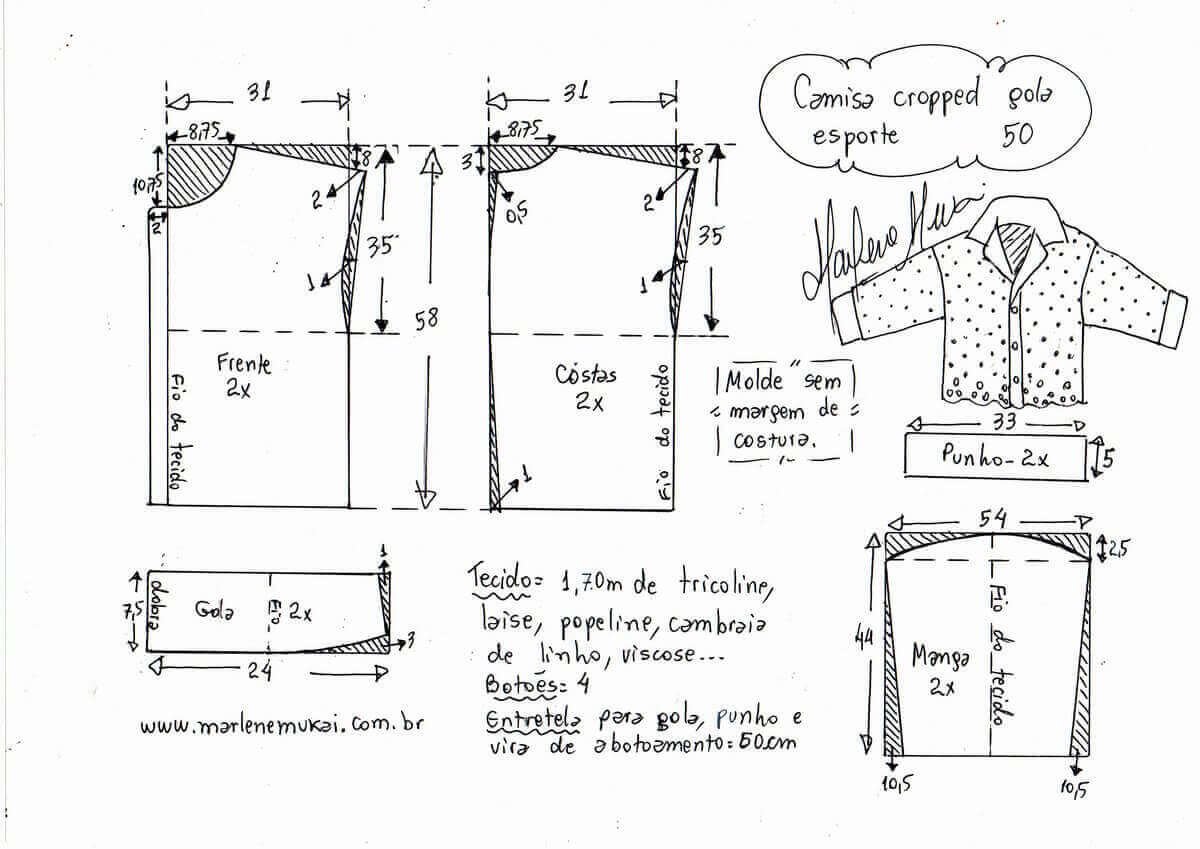 Camisa cropped gola
esporte 50
Marlene Mukai
31
8,75
10,75
2
8
2
35
1
58
Frente
2x
Fio do tecido
31
8,75
3
0,5
8
2
35
1
Cóstas
2x
Fio do tecido
1
Molde sem
margem de
costura.
33
Punho-2x
5
54
2,5
44
Manga
2x
Fio do tecido
10,5
10,5
7,5
dobra
Gola
Fio
2x
1
3
24
www.marlenemukai.com.br
Tecido= 1,70m de tricoline,
laise, popeline, cambraia
de linho, viscose...
Botões= 4
Entretela para gola, punho e
vira de abotoamento=50cm